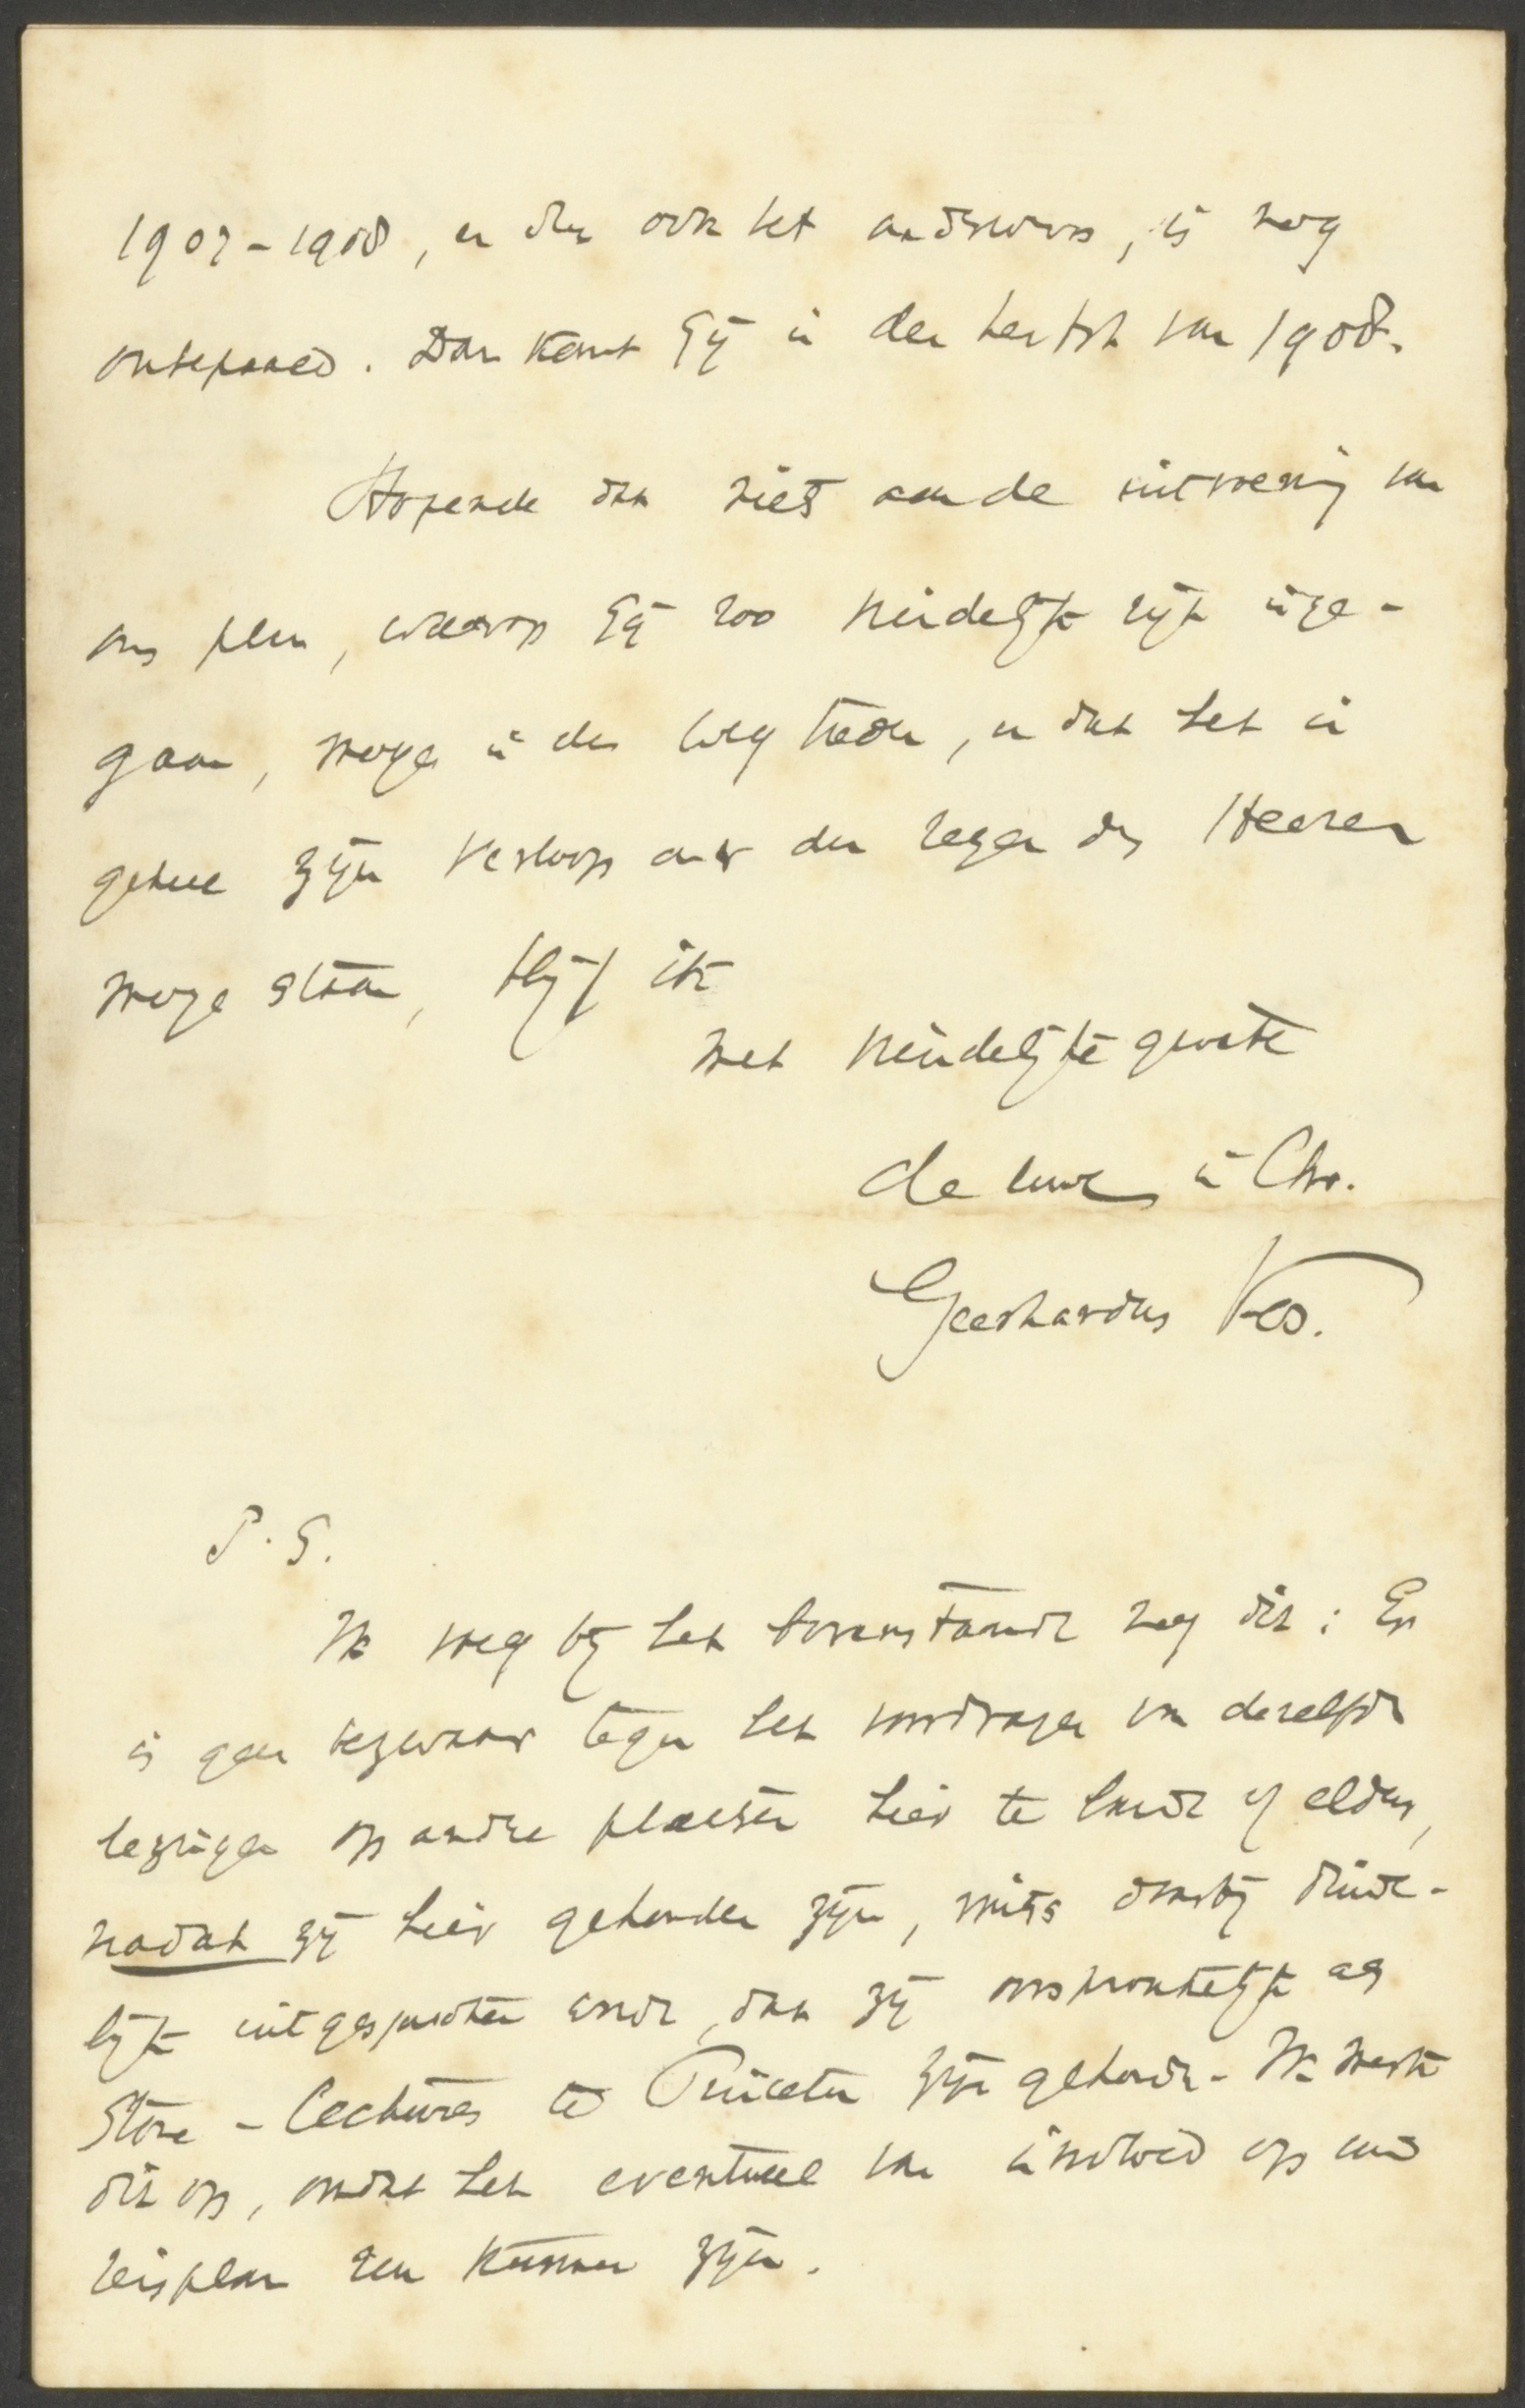 1907-1908, en dus ook het onderwerp, is nog
onbepaald. Dan komt Gij in den herfst van 1908.
Hopende dat niets aan de uitvoering van
ons plan, waarop Gij zoo vriendelijk zijt inge-
gaan, moge in den weg treden, en dat het in
geheel zijn verloop onder den zegen des Heeren
moge staan, blijf ik
met vriendelijke groete
de Uwe in Chr.
Geerhardus Vos.
P.S.
Ik voeg bij het bovenstaande nog dit: Er
is geen bezwaar tegen het voordragen van dezelfde
lezingen op andere plaatsen hier te lande of elders,
nadat zij hier gehouden zijn, mits daarbij duide-
lijk uitgesproken worde, dat zij oorspronkelijk als
Stone-Lectures te Princeton zijn gehouden. Ik merk
dit op, omdat het eventueel van invloed op uw
reisplan zou kunnen zijn.